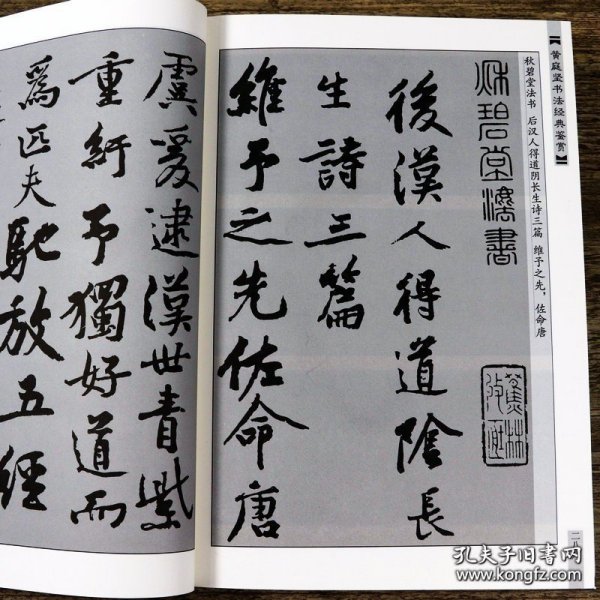 【黄庭坚书法经典鉴赏】
秋碧堂法书 后汉人得道阴长生诗三篇 维予之先，佐命唐
秋碧堂法書
蕉林
後漢人得道陰長
生詩三篇
維予之先佐命唐
虞爰逮漢世青紫
重紆予獨好道而
爲匹夫馳放五經
二八
孔夫子旧书网
www.kongfz.com